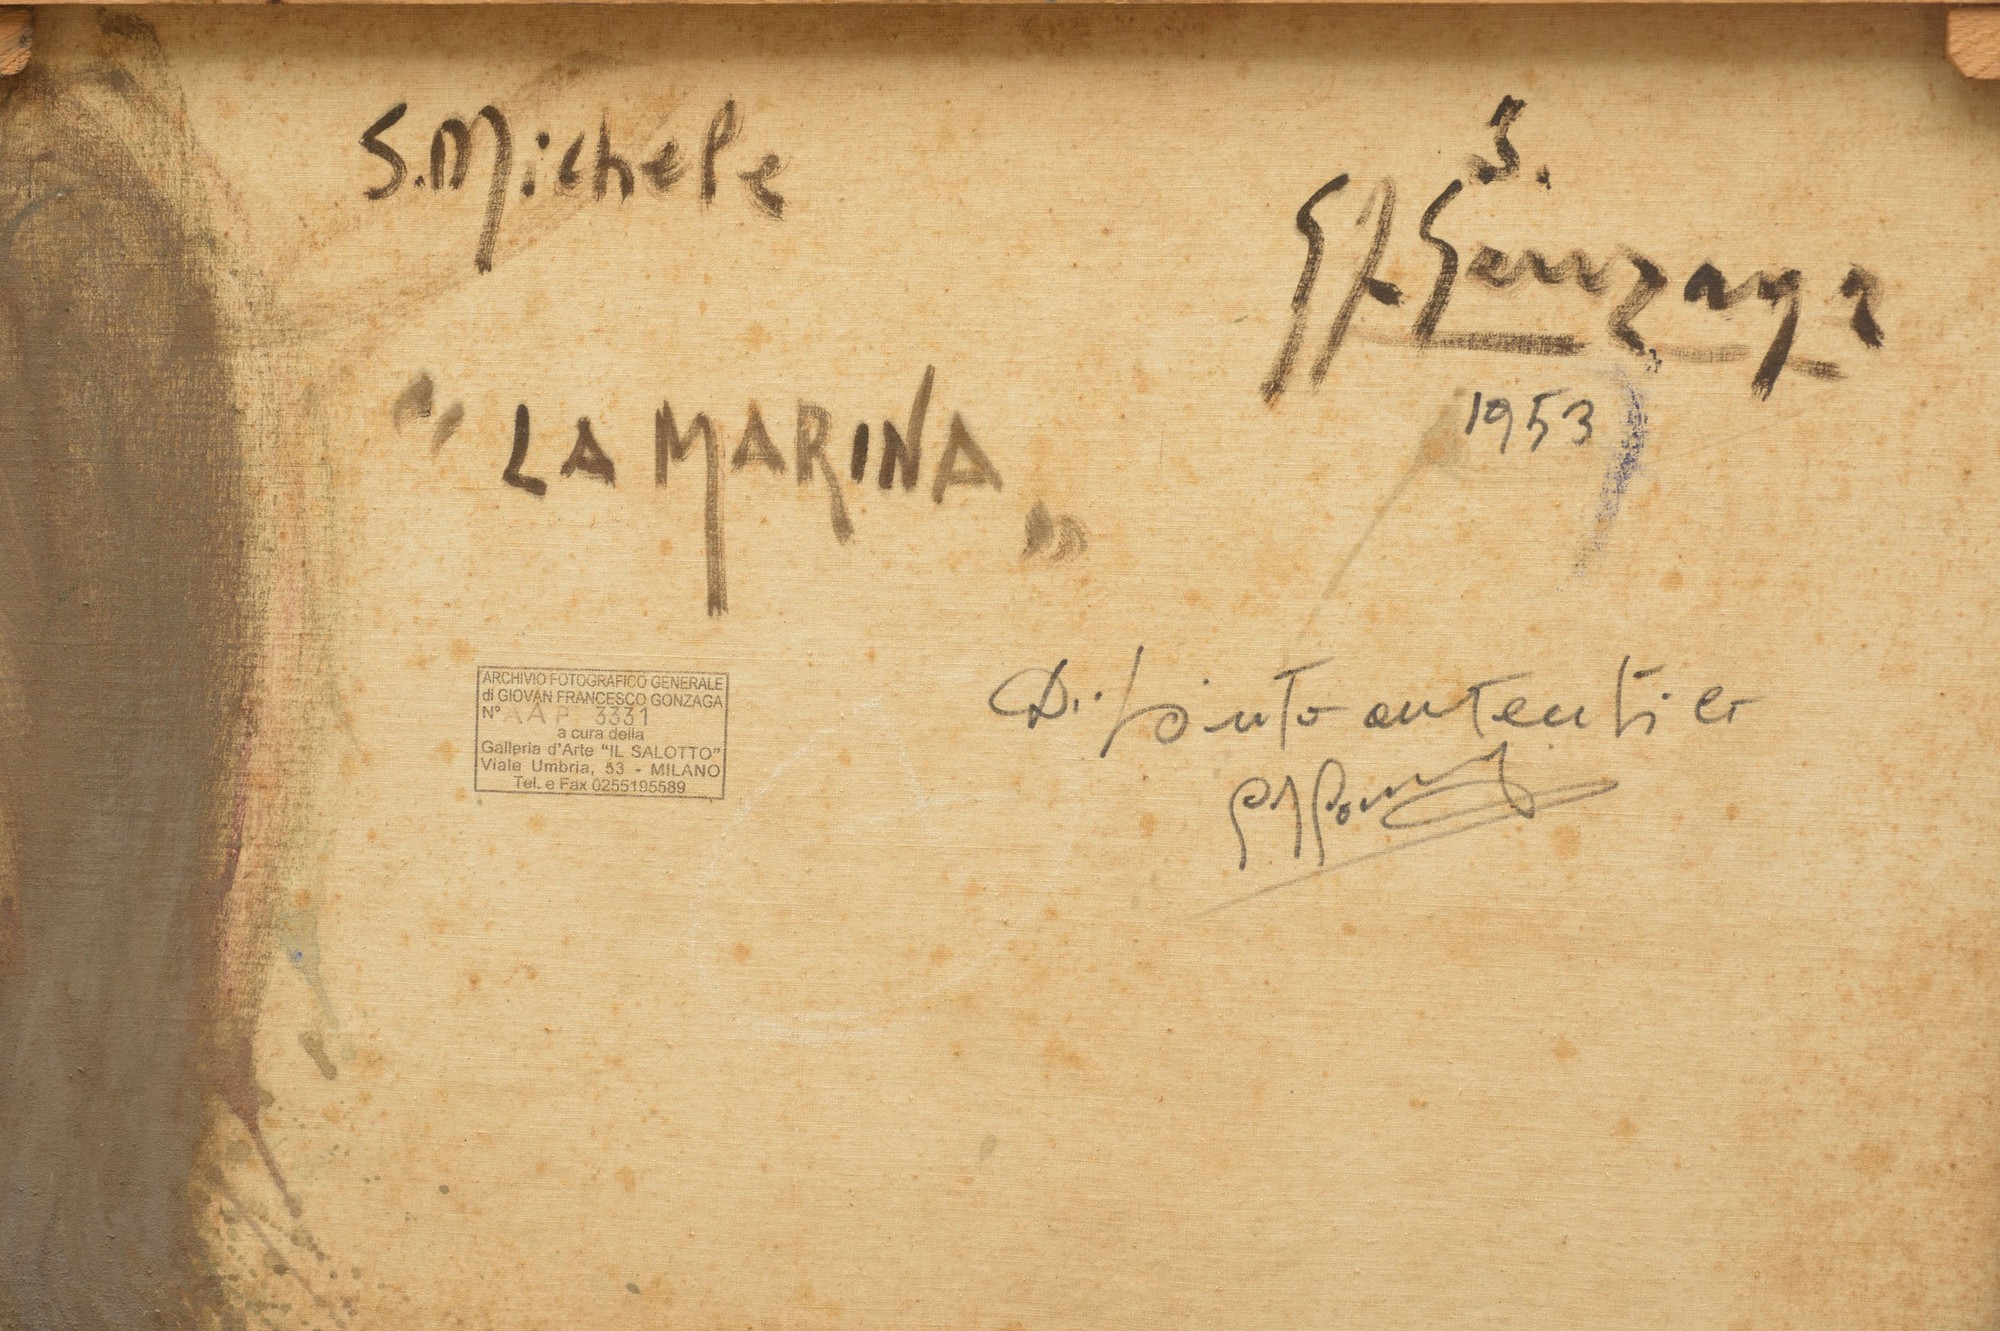 S. Michele
S.
G.F. Gonzaga
1953
"LA MARINA"
ARCHIVIO FOTOGRAFICO GENERALE
di GIOVAN FRANCESCO GONZAGA
N° AAP 3331
a cura della
Galleria d'Arte "IL SALOTTO"
Viale Umbria, 53 - MILANO
Tel. e Fax 0255195589
Dipinto autentico